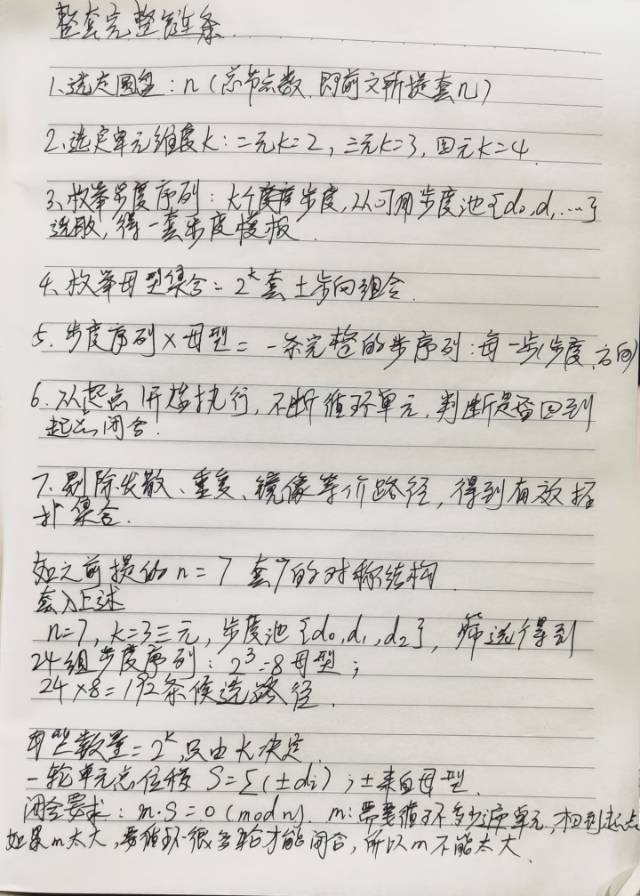 整套完整链条
1、选定圆盘：n（总节点数，即前文所提套n）
2、选定单元维度k：二元k=2，三元k=3，四元k=4
3、枚举步度序列：k个度度步度，从可用步度池{d₀,d₁…}
选取，得一套步度模板．
4、枚举母型集合=2^k套±步向组合．
5．步度序列×母型=一条完整的步序列：每一步(步度、方向)
6．从起点1开始执行，不断循环单元，判断是否回到
起点闭合．
7．剔除发散、重复、镜像等价路径，得到有效拓
扑集合．
如之前提的n=7 套7的对称结构
套入上述
n=7，k=3三元，步度池{d₀,d₁,d₂}，筛选得到
24组步度序列：2³=8母型；
24×8=192条候选路径
母型数量=2^k，只由k决定
一轮单元总位移 S=Σ(±dᵢ)；±来自母型．
闭合要求：m·S=0(mod n)．m：需要循环多少遍单元，回到起点
如果m太大，要循环很多轮才能闭合，所以m不能太大．